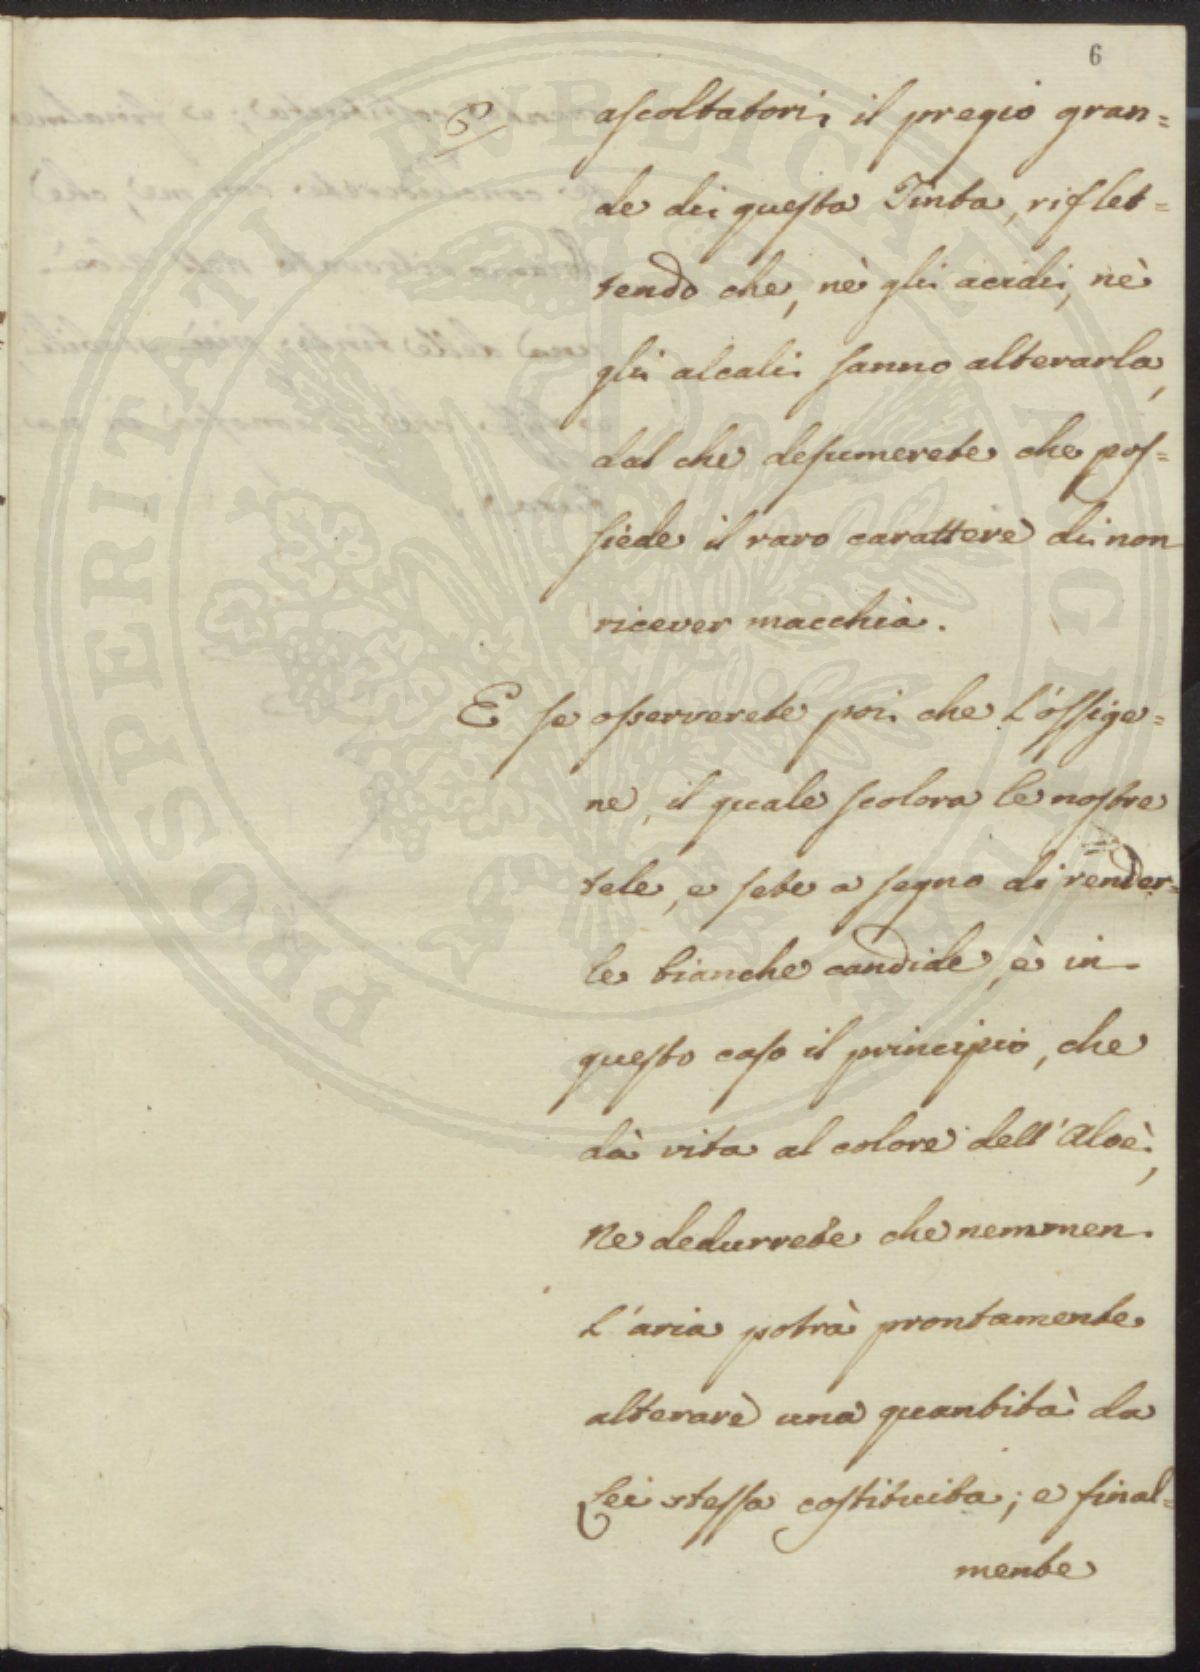 6
6
ascoltatori, il pregio gran=
de di questa Tinta, riflet=
tendo che, nè gli acidi, nè
gli alcali sanno alterarla,
dal che desumerete che pos=
siede il raro carattere di non
ricever macchia.
E se osserverete poi che l'ossige=
ne, il quale scolora le nostre
tele, e sete a segno di render=
le bianche candide, è in
questo caso il principio, che
dà vita al colore dell'Aloè;
Ne dedurrete che nemmen
l'aria potrà prontamente
alterare una quantità da
Lei stessa costituita; e final=
mente
PROSPERITATI PVBLICAE AVGENDAE